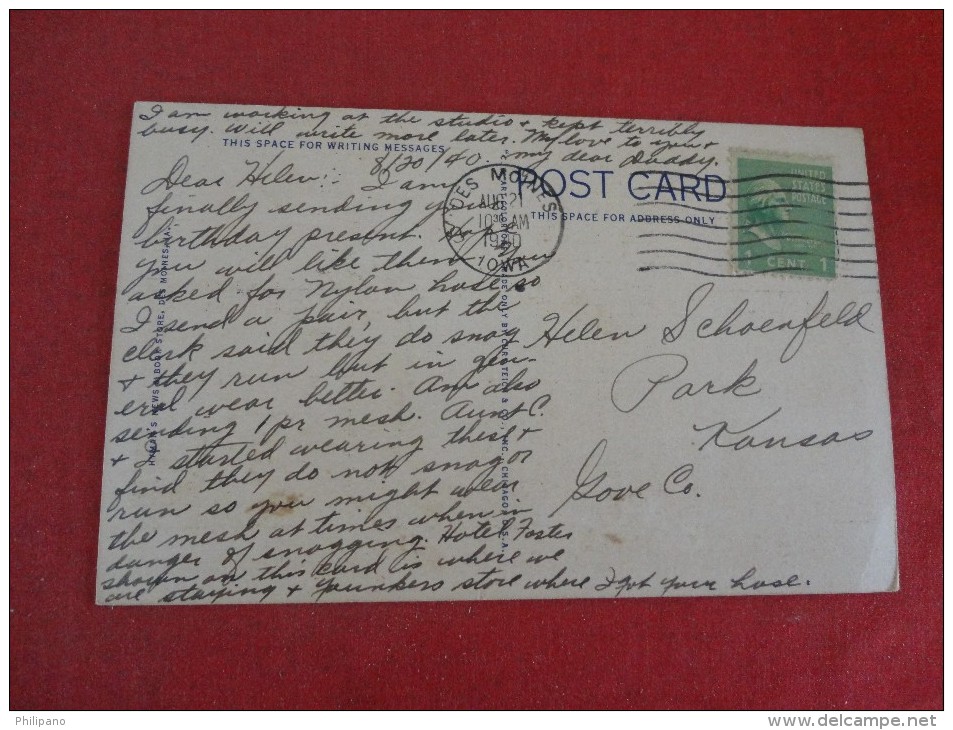 I am working at the studio & kept terribly
busy. Will write more later. My love to you &
my dear Daddy.
THIS SPACE FOR WRITING MESSAGES
8/20/40.
Dear Helen:- I am
finally sending your
birthday present. Hope
you will like them. You
asked for Nylon hose, so
I send a pair, but the
clerk said they do snag
& they run but in gen-
eral wear better. Am also
sending 1 pr mesh. Aunt C.
& I started wearing these &
find they do not snag or
run so you might wear
the mesh at times when in
danger of snagging. Hotel Foster
shown on this card is where we
are staying & Younkers store where I got your hose.
POST CARD
THIS SPACE FOR ADDRESS ONLY
DES MOINES
AUG 21
10 30 AM
1940
IOWA
UNITED
STATES
POSTAGE
1 CENT 1
Helen Schoenfeld
Park
Kansas
Gove Co.
HYMAN'S NEWS & BOOK STORE, DES MOINES, IA.
MADE ONLY BY CURT TEICH & CO., INC., CHICAGO, U.S.A.
Philipano
www.delcampe.net